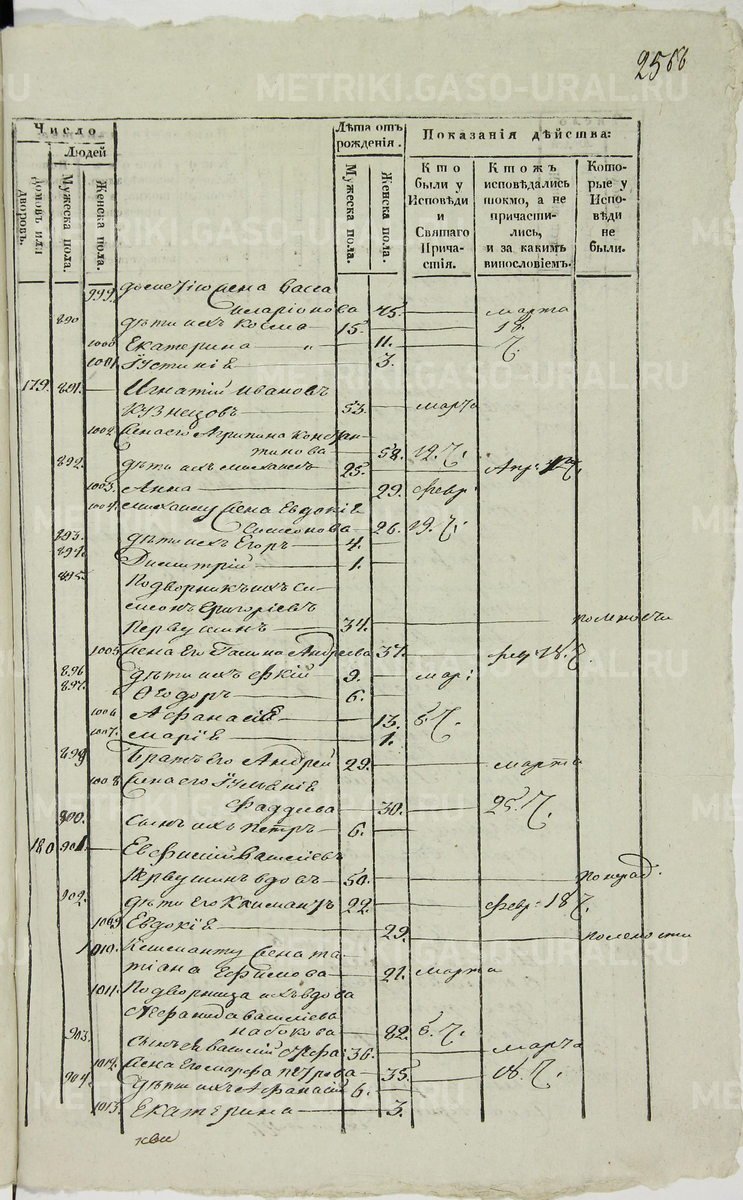 2566
Число
Людей
Домовъ или дворовъ.
Мужеска пола.
Женска пола.
Лѣта отъ рожденія.
Мужеска пола.
Женска пола.
Показанія дѣйства:
Кто были у Исповѣди и Святаго Причастія.
Ктожъ исповѣдались токмо, а не причастились, и за какимъ винословіемъ.
Которые у Исповѣди не были.
999. жена Васса
Иларіонова 45. марта
890 дѣти ихъ Косма 15. 18.
1000 Екатерина 11. Ч.
1001. Іустинія 3.
179. 891. Игнатій Ивановъ
Кузнецовъ 53. марта
1002. Жена его Агрипина Констан-
тинова 58. 12. Ч.
892. дѣти ихъ Михаилъ 25. Апр: 17.
1003. Анна 29. февр:
1004. Михаилу жена Евдокія
Симеонова 26. 19. Ч.
893. дѣти ихъ Егоръ 4.
894. Димитрій 1.
895. Подворникъ ихъ Си-
меонъ Григоріевъ
Первушинъ 34. по леностн
1005 Жена его Галина Андреева 37. февр: 18. Ч.
896 дѣти ихъ 9. мар:
897. Ѳеодоръ 6.
1006 Афанасія 13. 5. Ч.
1007. Марія 1.
899 Братъ его Андрей 29. марта
1008. Жена его Іуліанія
Фаддеева 30. 25. Ч.
900. Сынъ ихъ Петръ 6.
180 901. Евфимій Василіевъ
Первушинъ вдовъ 50. по нерад.
902. дѣти его Климантъ 22. февр: 18 Ч.
1009. Евдокія 29. по лености
1010. Климанту жена Та-
тіана Ефимова 21. марта
1011. Подворница ихъ вдова
Стефанида Василіева
Набокова 82. 5. Ч.
903. Сынъ ея Василій 36. марта
1012. Жена его Марфа Петрова 35. 18. Ч.
904. дѣти ихъ Афанасій 6.
1013. Екатерина 3.